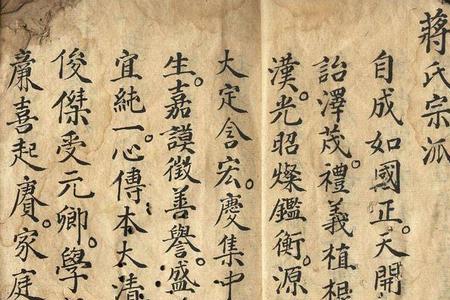 蔣氏宗派
自成如國正。天開
詒澤茂。禮義植根
漢。光昭燦鑑衡。源
大定含宏。慶集中
生。嘉謨徵善譽。盛
宜純一。心傳本太清
俊傑受元卿。學
廉喜起賡。家庭